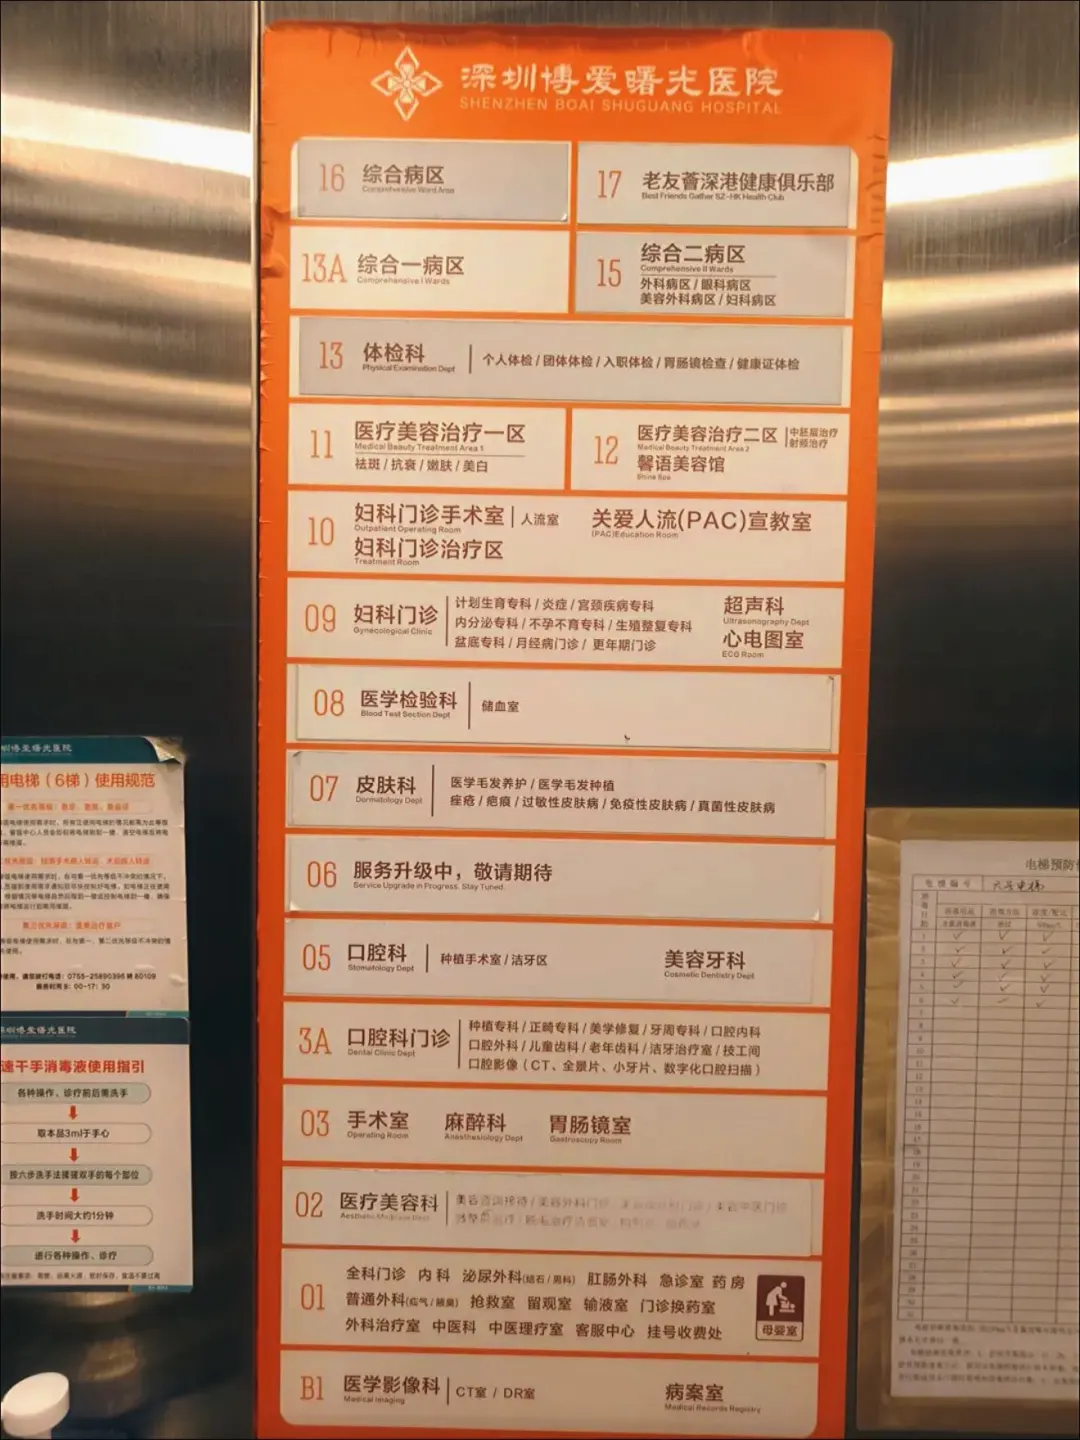 深圳博爱曙光医院
SHENZHEN BOAI SHUGUANG HOSPITAL
16 综合病区
Comprehensive Ward Area
17 老友荟深港健康俱乐部
Best Friends Gather SZ-HK Health Club
13A 综合一病区
Comprehensive I Wards
15 综合二病区
Comprehensive II Wards
外科病区 / 眼科病区
美容外科病区 / 妇科病区
13 体检科
Physical Examination Dept
个人体检 / 团体体检 / 入职体检 / 胃肠镜检查 / 健康证体检
11 医疗美容治疗一区
Medical Beauty Treatment Area 1
祛斑 / 抗衰 / 嫩肤 / 美白
12 医疗美容治疗二区
Medical Beauty Treatment Area 2
中胚层治疗
射频治疗
馨语美容馆
Shine Spa
10 妇科门诊手术室 人流室
Outpatient Operating Room
妇科门诊治疗区
Treatment Room
关爱人流(PAC)宣教室
(PAC)Education Room
09 妇科门诊
Gynecological Clinic
计划生育专科 / 炎症 / 宫颈疾病专科
内分泌专科 / 不孕不育专科 / 生殖整复专科
盆底专科 / 月经病门诊 / 更年期门诊
超声科
Ultrasonography Dept
心电图室
ECG Room
08 医学检验科
Blood Test Section Dept
储血室
07 皮肤科
Dermatology Dept
医学毛发养护 / 医学毛发种植
痤疮 / 疤痕 / 过敏性皮肤病 / 免疫性皮肤病 / 真菌性皮肤病
06 服务升级中，敬请期待
Service Upgrade in Progress. Stay Tuned.
05 口腔科
Stomatology Dept
种植手术室 / 洁牙区
美容牙科
Cosmetic Dentistry Dept
3A 口腔科门诊
Dental Clinic Dept
种植专科 / 正畸专科 / 美学修复 / 牙周专科 / 口腔内科
口腔外科 / 儿童齿科 / 老年齿科 / 洁牙治疗室 / 技工间
口腔影像（CT、全景片、小牙片、数字化口腔扫描）
03 手术室
Operating Room
麻醉科
Anesthesiology Dept
胃肠镜室
Gastroscopy Room
02 医疗美容科
Aesthetic Medicine Dept
美容咨询接待 / 美容外科门诊 / 美容中医门诊
01 全科门诊 内科 泌尿外科(结石 / 男科) 肛肠外科 急诊室 药房
普通外科(疝气 / 腋臭) 抢救室 留观室 输液室 门诊换药室
外科治疗室 中医科 中医理疗室 客服中心 挂号收费处
母婴室
B1 医学影像科
Medical Imaging
CT室 / DR室
病案室
Medical Records Registry
圳博爱曙光医院
用电梯（6梯）使用规范
0755-25890396 转 80109
服务时间 8：00-17：30
深圳博爱曙光医院
速干手消毒液使用指引
各种操作、诊疗前后需洗手
取本品3ml于手心
按六步洗手法揉搓双手的每个部位
洗手时间大约1分钟
进行各种操作、诊疗
电梯预防
电梯编号 六号电梯